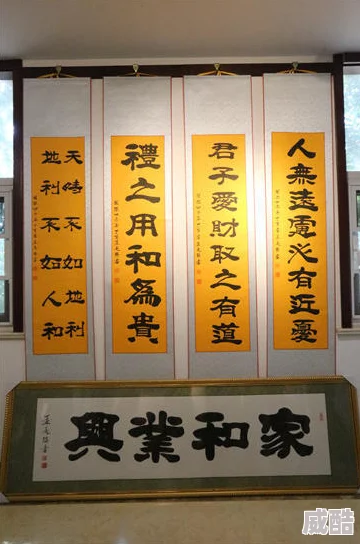 人無遠慮必有近憂
君子愛財取之有道
禮之用和爲貴
天時不如地利
地利不如人和
家和業興
威酷